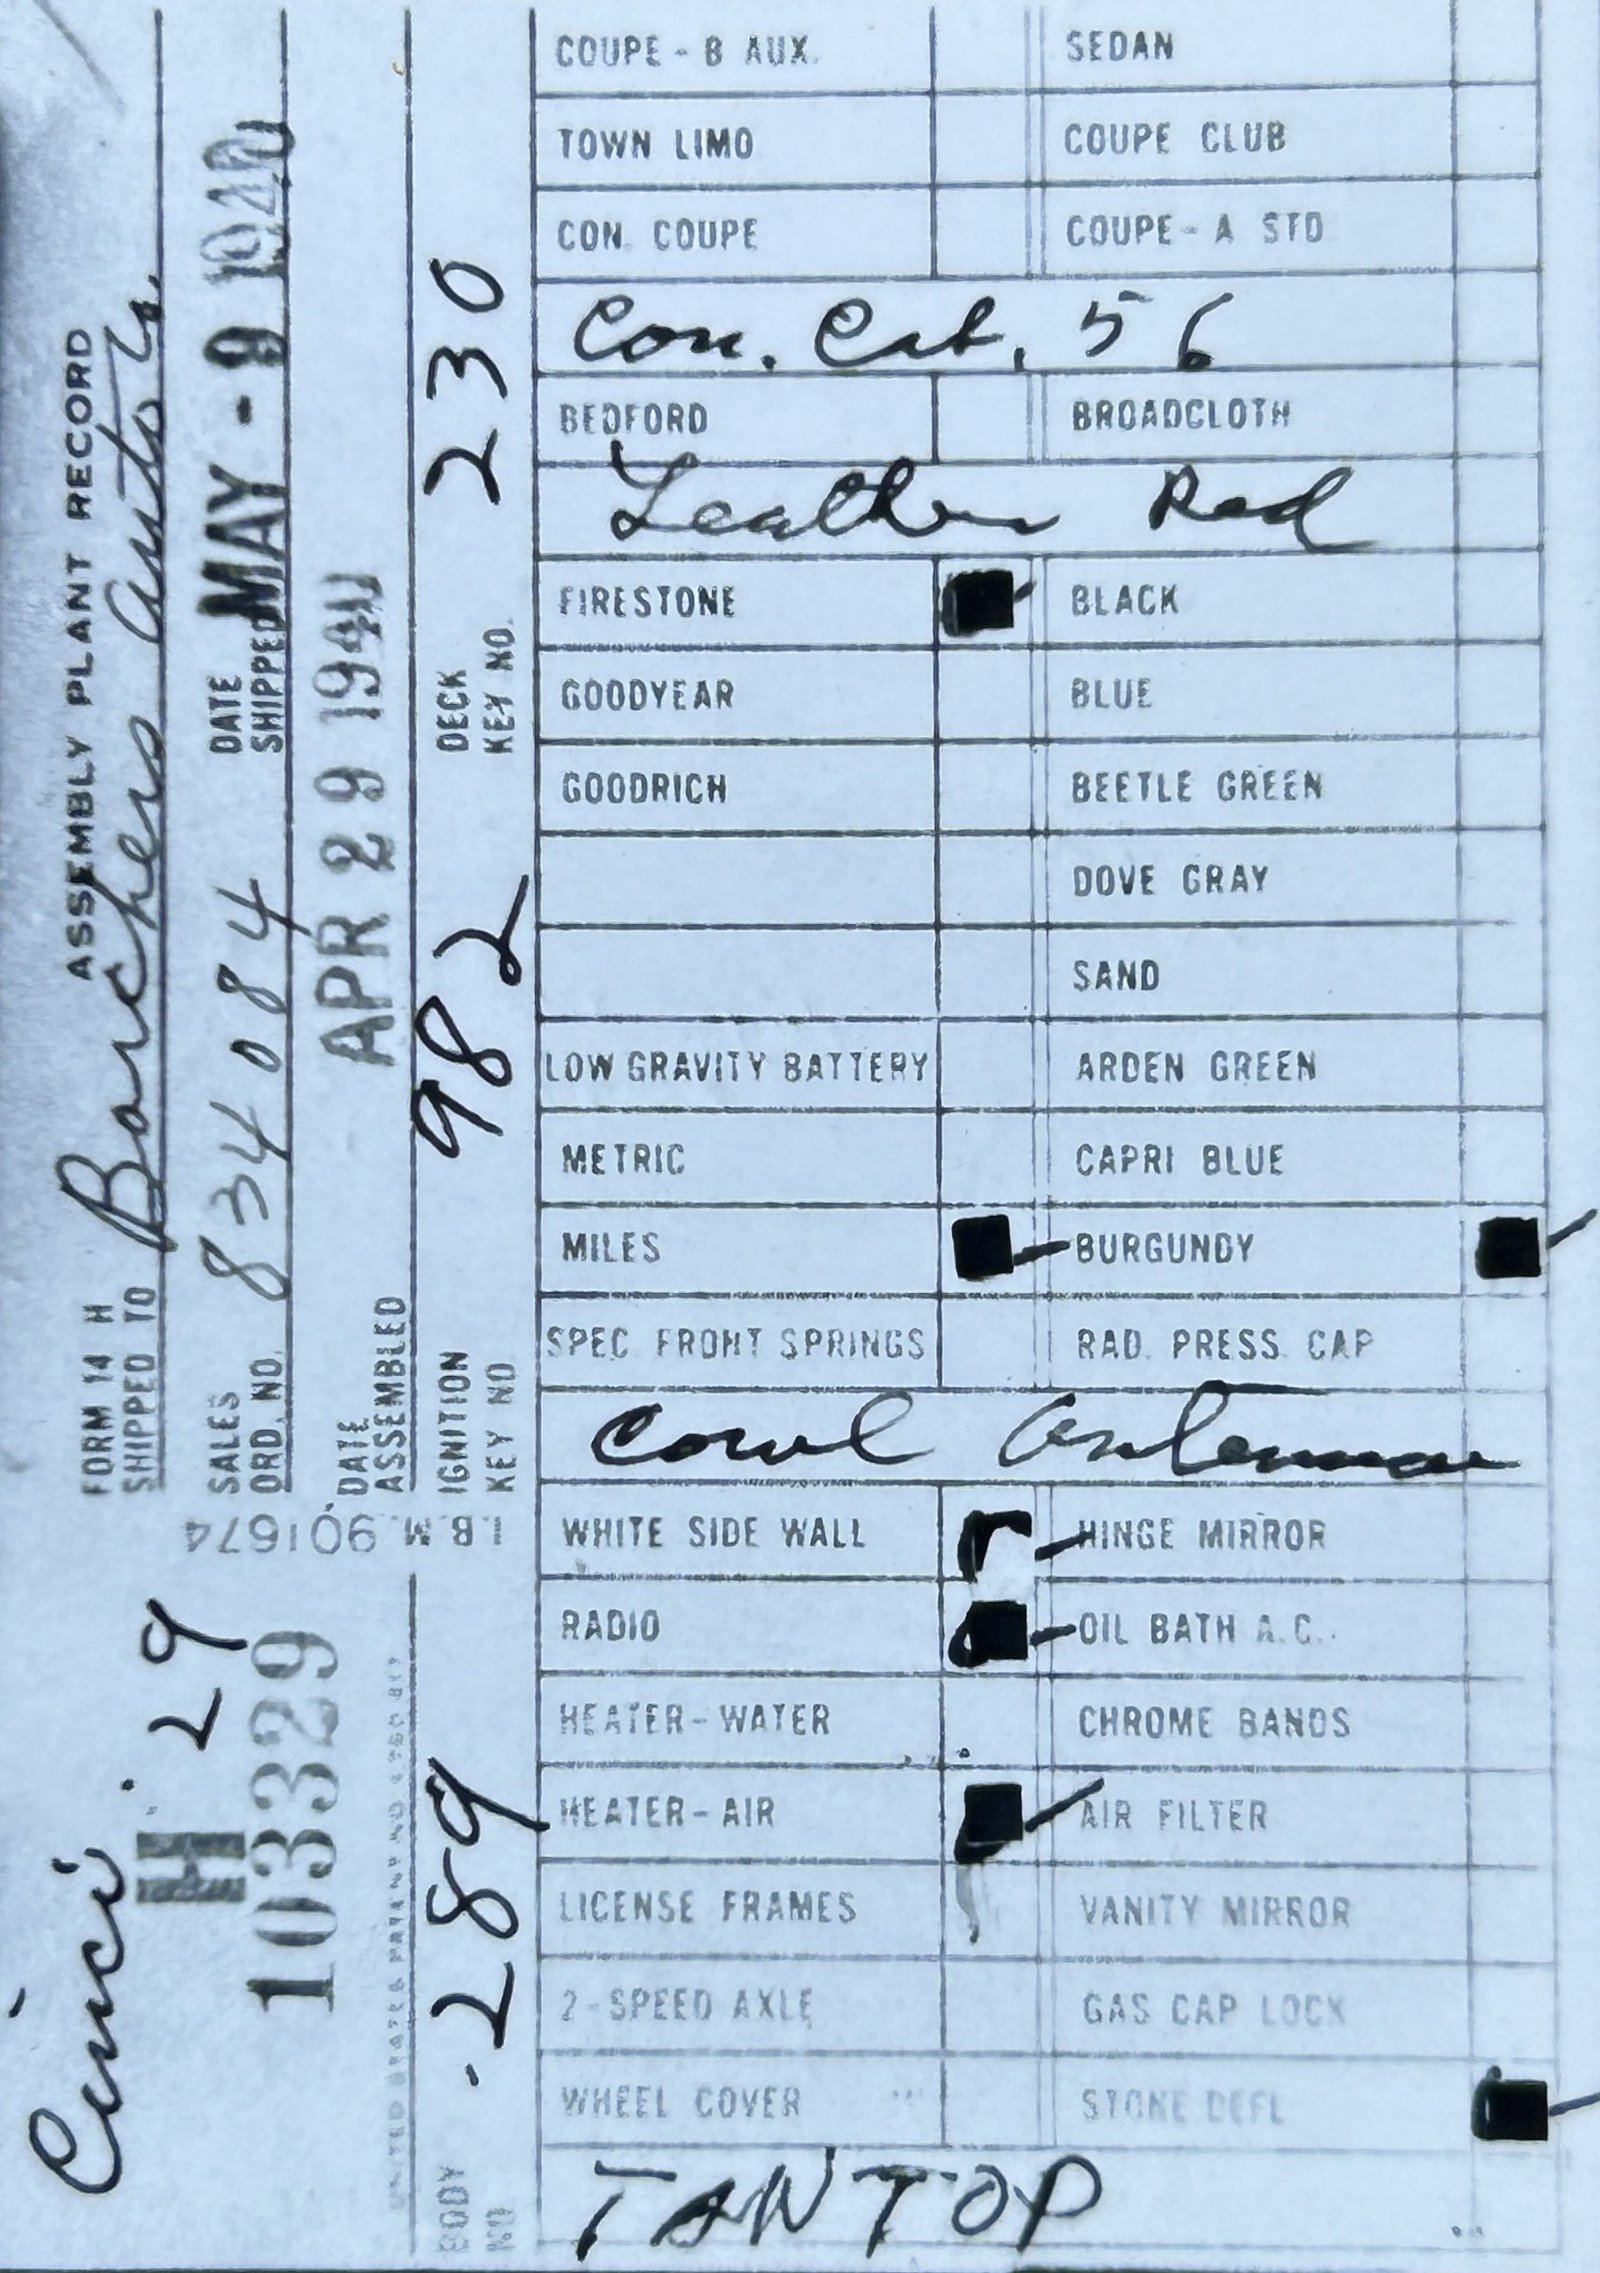 FORM 14 H ASSEMBLY PLANT RECORD
SHIPPED TO Borchers Auto Co.
SALES ORD. NO. 834084 DATE SHIPPED MAY - 9 1940
DATE ASSEMBLED APR 29 1940
IGNITION KEY NO 982 DECK KEY NO. 230
I.B.M. 901674
Cinci
29
H
103329
BODY NO 289
COUPE - B AUX. SEDAN
TOWN LIMO COUPE CLUB
CON. COUPE COUPE - A STD
Con. Cab. 56
BEDFORD BROADCLOTH
Leather Red
FIRESTONE BLACK
GOODYEAR BLUE
GOODRICH BEETLE GREEN
DOVE GRAY
SAND
LOW GRAVITY BATTERY ARDEN GREEN
METRIC CAPRI BLUE
MILES BURGUNDY
SPEC. FRONT SPRINGS RAD. PRESS. CAP
Cowl Antennae
WHITE SIDE WALL HINGE MIRROR
RADIO OIL BATH A.C.
HEATER - WATER CHROME BANDS
HEATER - AIR AIR FILTER
LICENSE FRAMES VANITY MIRROR
2 - SPEED AXLE GAS CAP LOCK
WHEEL COVER STONE DEFL
TAN TOP